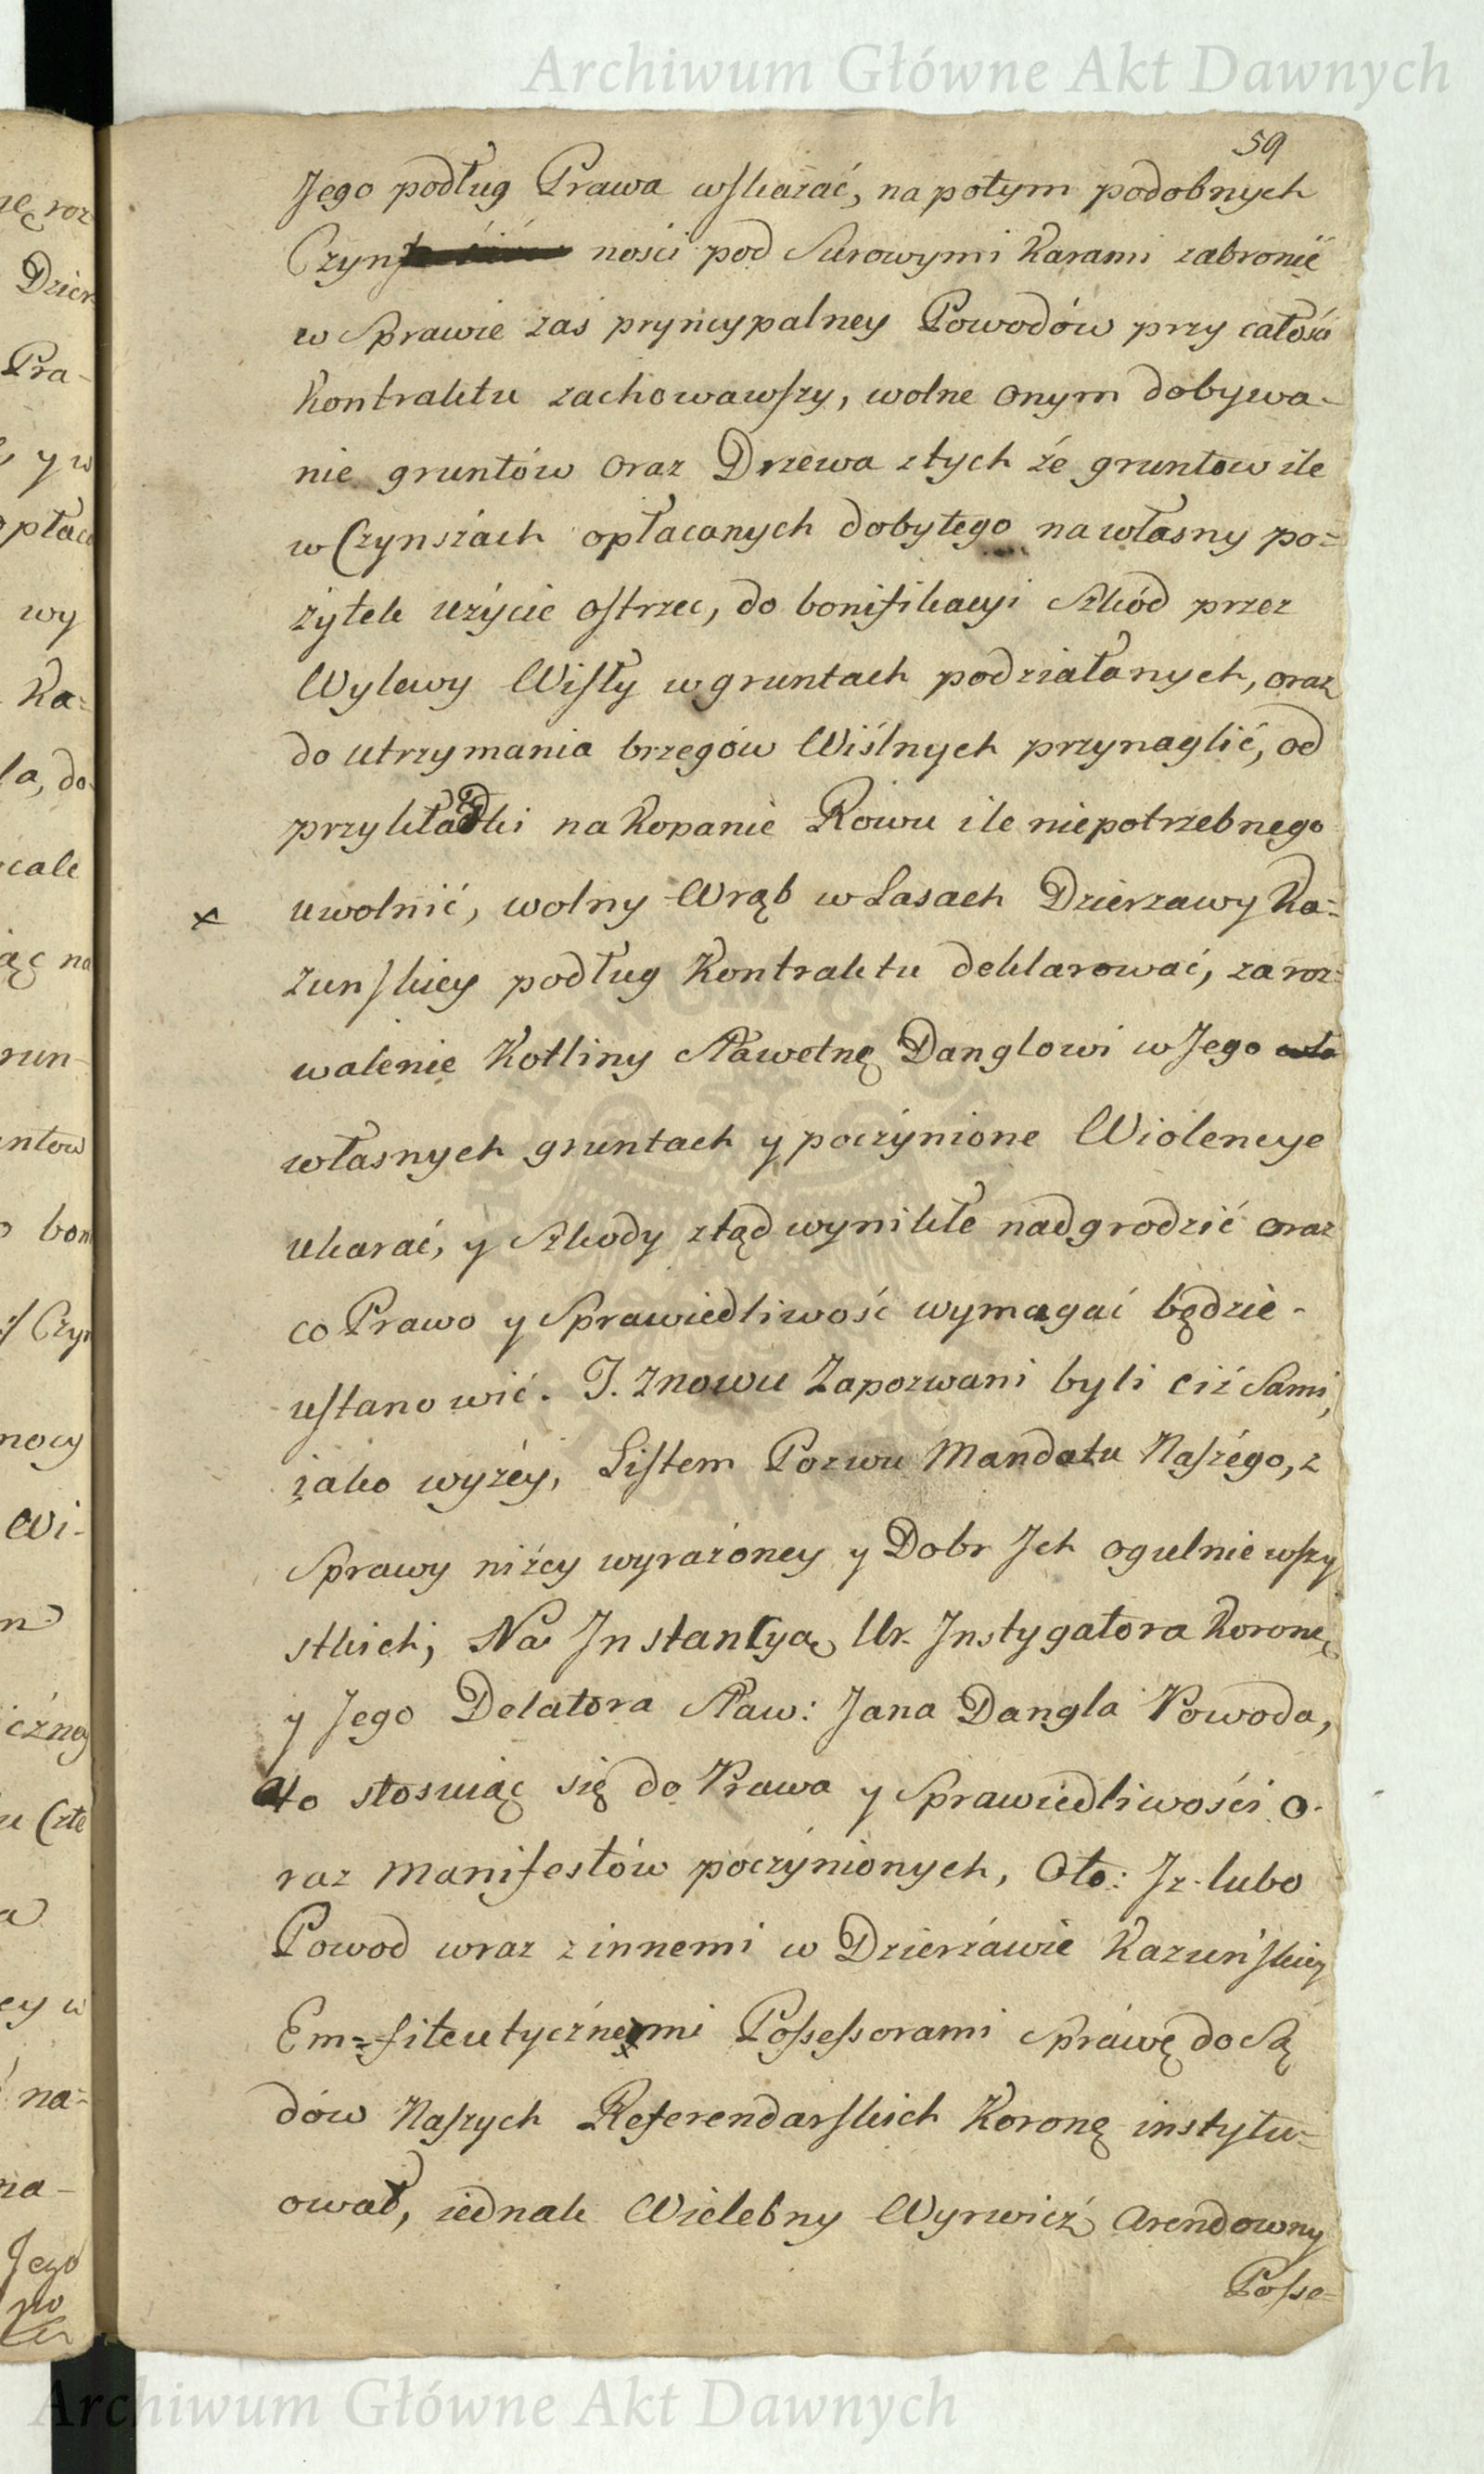 Archiwum Główne Akt Dawnych
59
Jego podług Prawa wskazać, na potym podobnych
Czyn ności pod Surowymi Karami zabronić
w Sprawie zaś pryncypalney Powodów przy całości
Kontraktu zachowawszy, wolne onym dobywa-
nie gruntów oraz Drzewa z tych że gruntow ile
w Czynszach opłacanych dobytego na własny po=
żytek użycie ostrzec, do bonifikacyi Szkód przez
Wylewy Wisły w gruntach podziałanych, oraz
do utrzymania brzegów Wiślnych przynaglić, od
przykładki na Kopanie Rowu ile niepotrzebnego
x uwolnić, wolny Wrąb w Lasach Dzierzawy Ka=
zunskiey podług Kontraktu deklarować, za roz=
walenie Kotliny Sławetnę Danglowi w Jego
własnych gruntach y poczynione Wiolencye
ukarać, y Szkody ztąd wynikłe nadgrodzić oraz
co Prawo y Sprawiedliwość wymagać będzie-
ustanowić. J. Znowu Zapozwani byli ciż Sami,
iako wyżey, Listem Pozwu Mandatu Naszego, z
Sprawy niżey wyrażoney y Dobr Jch ogulnie wszy
stkich; Na Jnstancyą Ur. Jnstygatora Koronę
y Jego Delatora Sław: Jana Dangla Powoda,
Ato stosuiąc się do Prawa y Sprawiedliwości o-
raz Manifestów poczynionych, Oto: Jz lubo
Powod wraz z innemi w Dzierżawie Kazuńskiey
Em=fiteutycznemi Possessorami Sprawę do Są
dów Naszych Referendarskich Koronę instytu=
ował, iednak Wielebny Wyrwicz Arendowny
Posse=
Archiwum Główne Akt Dawnych